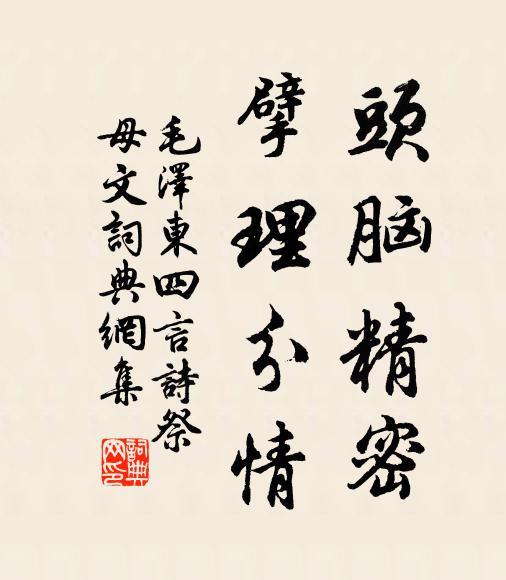 頭脑精密
擘理分情
毛澤東四言詩祭
母文詞典網集
詞典网印